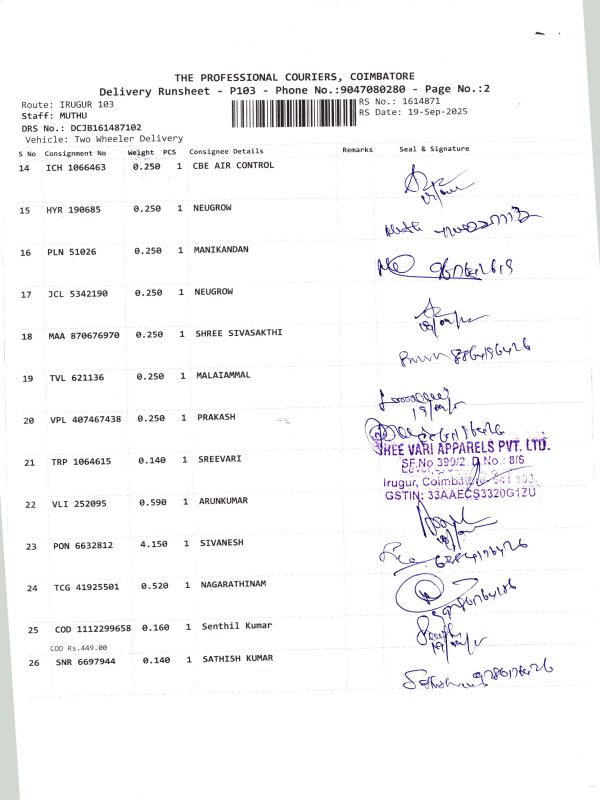 THE PROFESSIONAL COURIERS, COIMBATORE
Delivery Runsheet - P103 - Phone No.:9047080280 - Page No.:2
Route: IRUGUR 103
RS No.: 1614871
Staff: MUTHU
RS Date: 19-Sep-2025
DRS No.: DCJB161487102
Vehicle: Two Wheeler Delivery
S No Consignment No Weight PCS Consignee Details Remarks Seal & Signature
14 ICH 1066463 0.250 1 CBE AIR CONTROL
15 HYR 190685 0.250 1 NEUGROW
16 PLN 51026 0.250 1 MANIKANDAN
17 JCL 5342190 0.250 1 NEUGROW
18 MAA 870676970 0.250 1 SHREE SIVASAKTHI
19 TVL 621136 0.250 1 MALAIAMMAL
20 VPL 407467438 0.250 1 PRAKASH
SHREE VARI APPARELS PVT. LTD.
21 TRP 1064615 0.140 1 SREEVARI
SF.No.399/2. D.No.: 8/6
Irugur,
GSTIN: 33AAECS3320G1ZU
22 VLI 252095 0.590 1 ARUNKUMAR
23 PON 6632812 4.150 1 SIVANESH
24 TCG 41925501 0.520 1 NAGARATHINAM
25 COD 1112299658 0.160 1 Senthil Kumar
COD Rs.449.00
26 SNR 6697944 0.140 1 SATHISH KUMAR